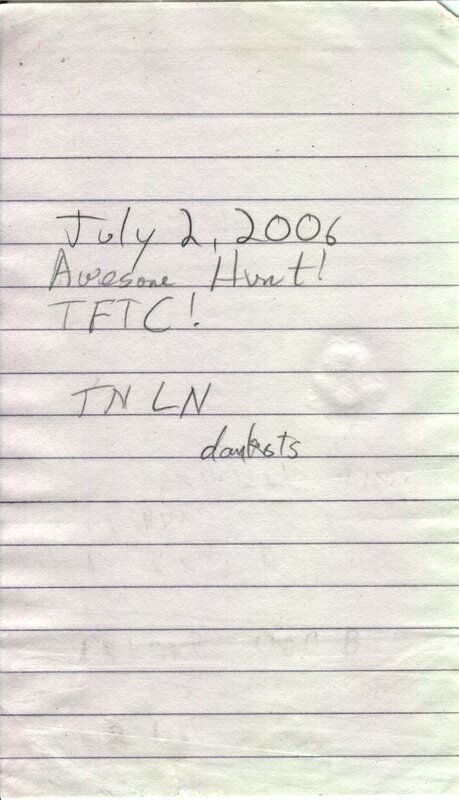 July 2, 2006
Awesome Hunt!
TFTC!
TN LN